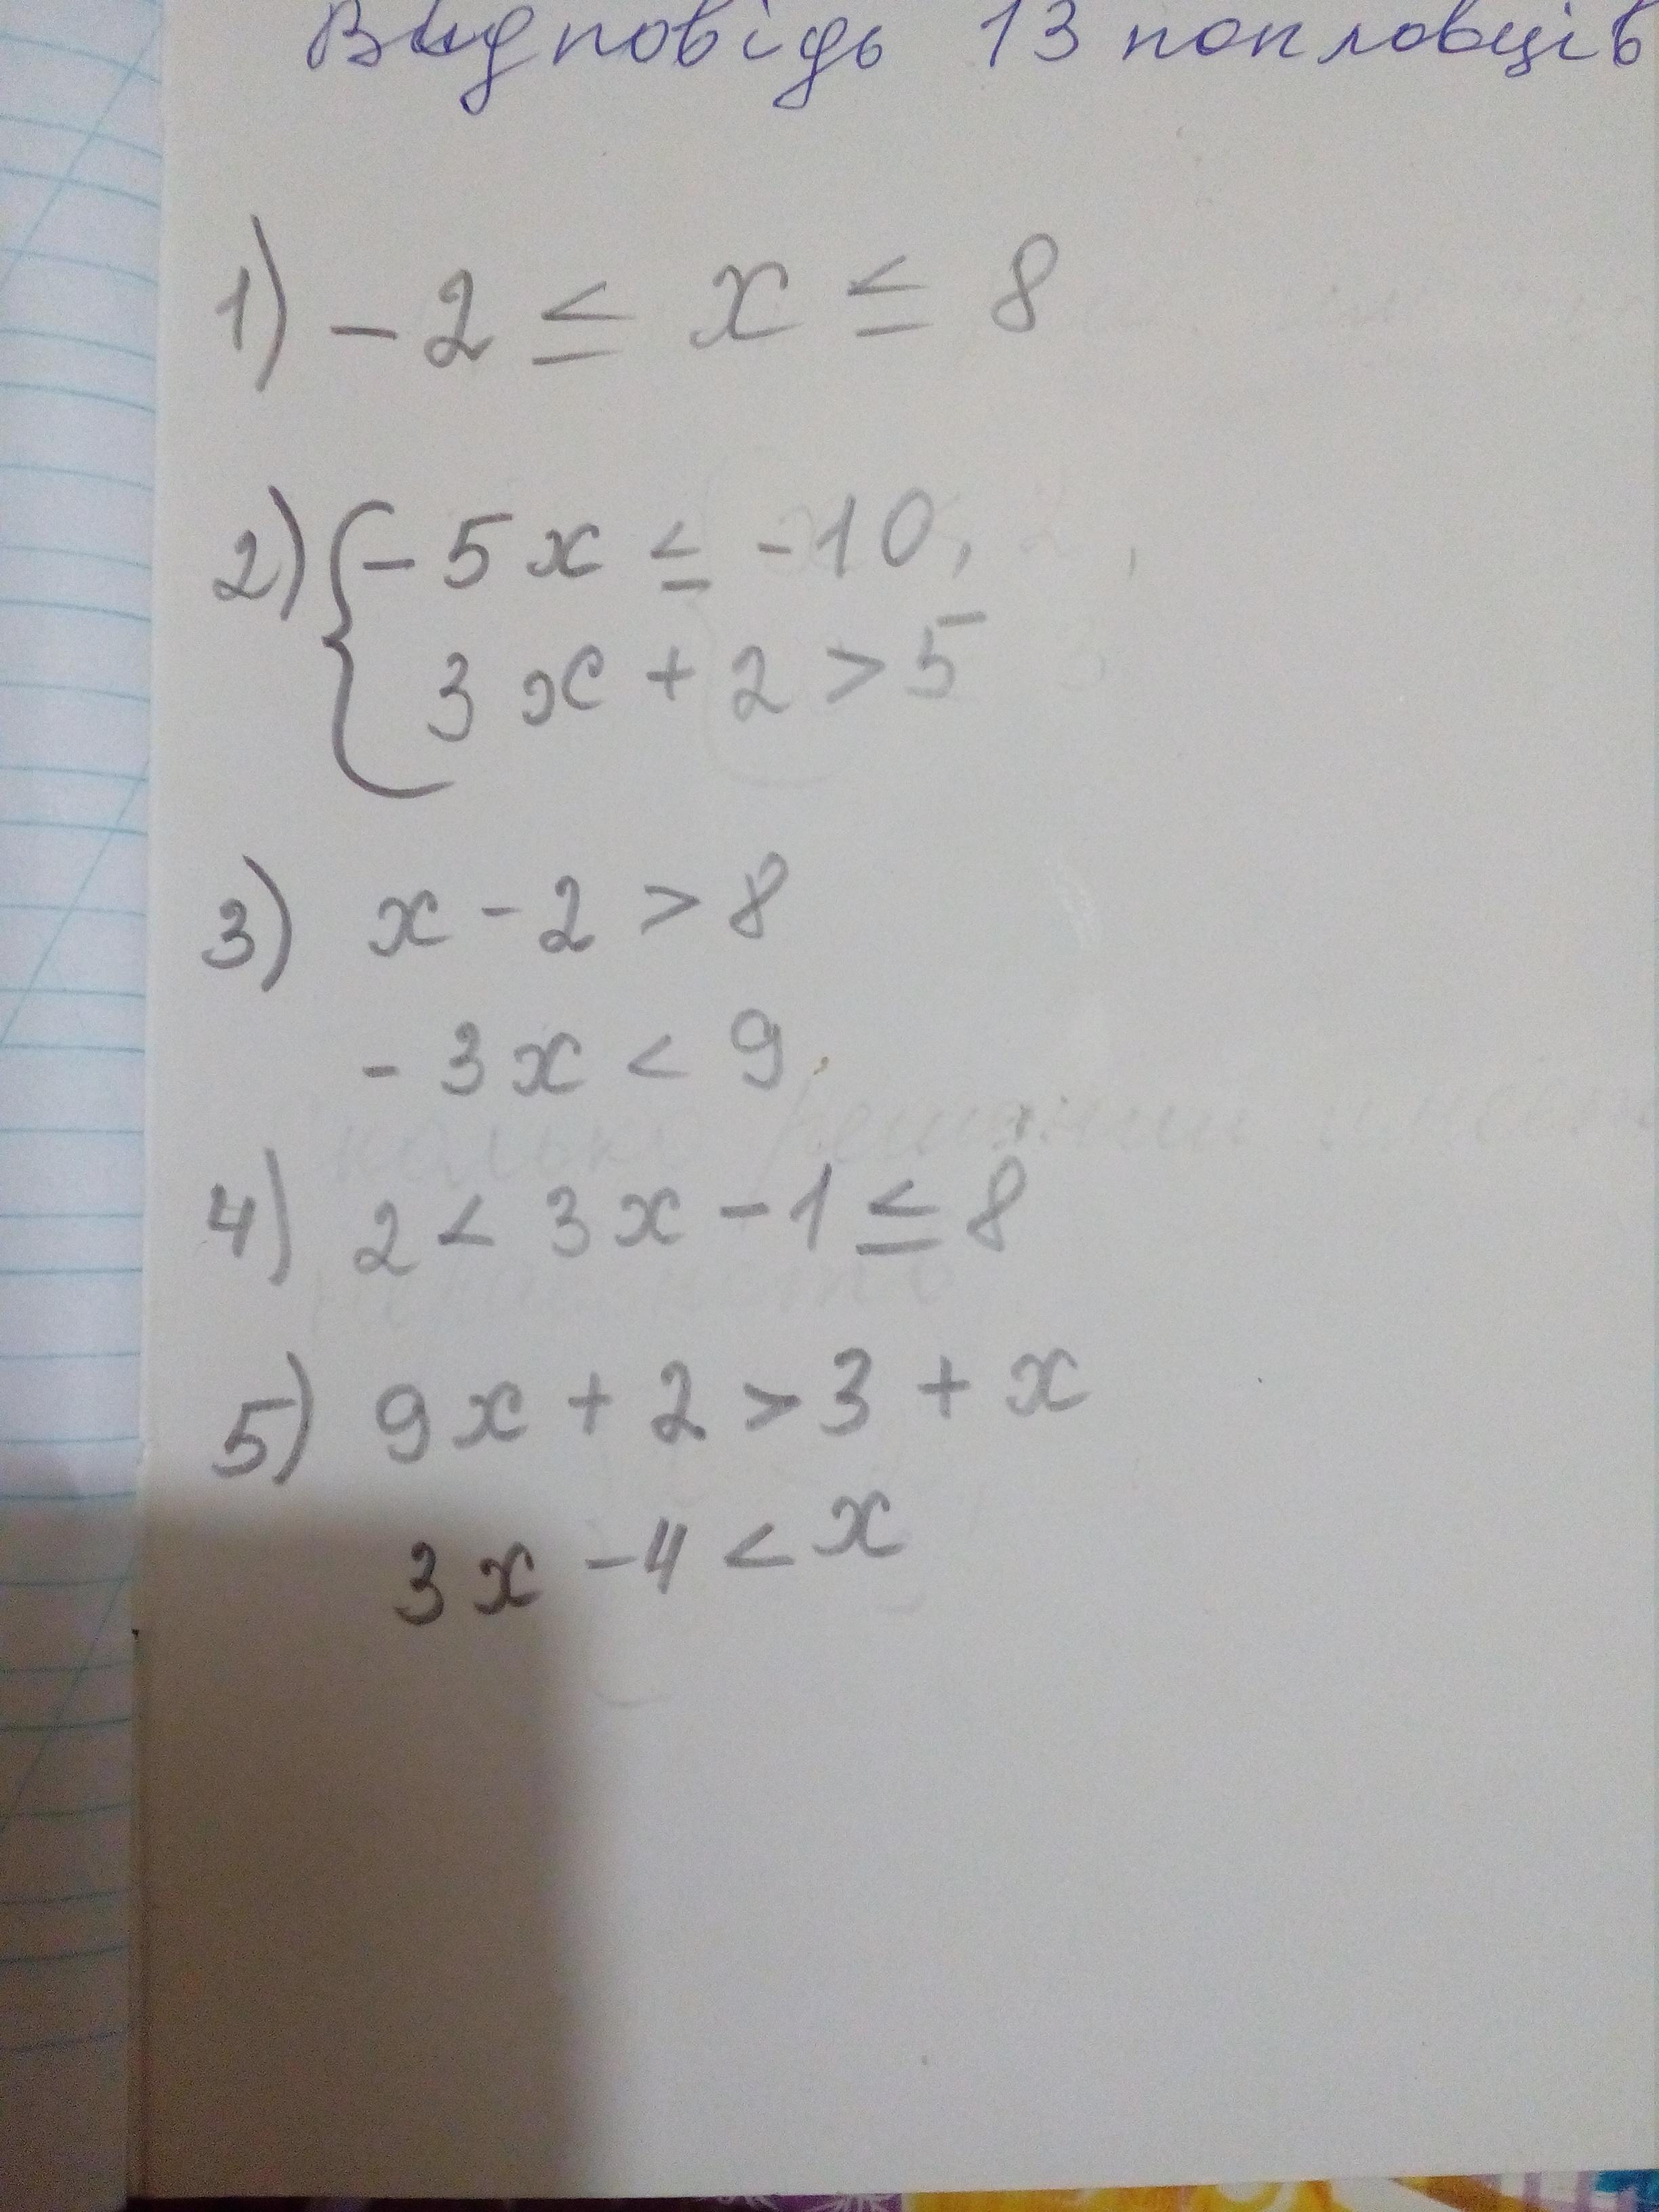 Відповідь 13 поплавців
1) -2 ≤ x ≤ 8
2) { -5x ≤ -10,
3x + 2 > 5
3) x - 2 > 8
-3x < 9
4) 2 < 3x - 1 ≤ 8
5) 9x + 2 > 3 + x
3x - 4 < x